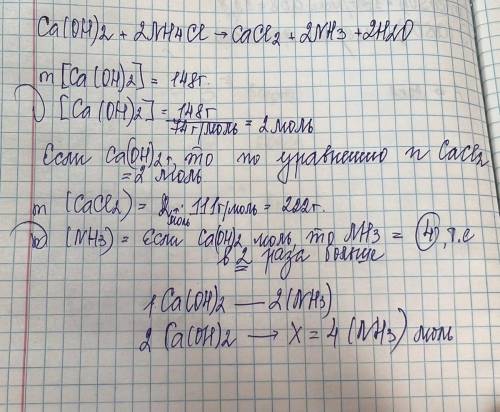 Ca(OH)2 + 2NH4Cl → CaCl2 + 2NH3 + 2H2O
m [Ca(OH)2] = 148г.
[Ca(OH)2] = 148г
74г/моль = 2 моль
Если Ca(OH)2, то по уравнению n CaCl2
= 2 моль
m (CaCl2) = 2 моль · 111г/моль = 222г.
(NH3) = Если Ca(OH)2 моль, то NH3 = 4, т.е
в 2 раза больше
1 Ca(OH)2 — 2(NH3)
2 Ca(OH)2 → X = 4 (NH3) моль